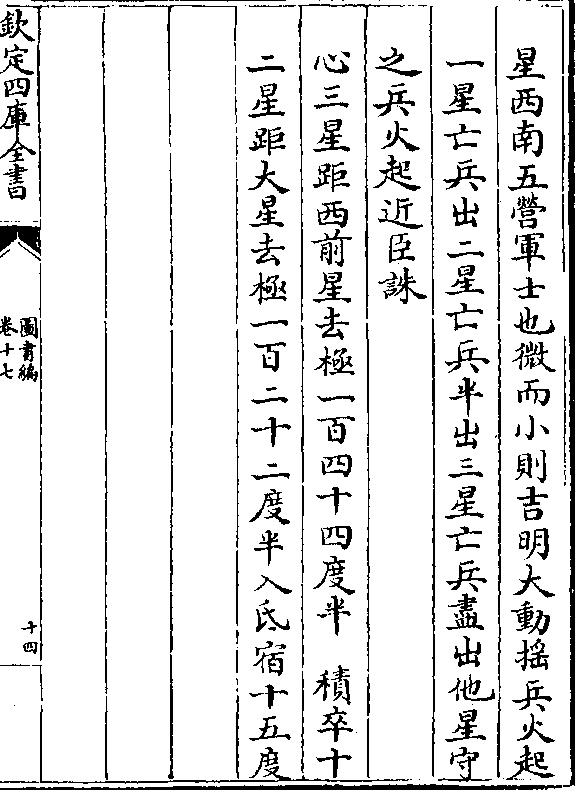 星西南五營軍士也微而小則吉明大動揺兵火起
一星亡兵出二星亡兵半出三星亡兵盡出他星守
之兵火起近臣誅
心三星距西前星去極一百四十四度半　積卒十
二星距大星去極一百二十二度半入氐宿十五度
欽定四庫全書
圖書編
卷十七
十四